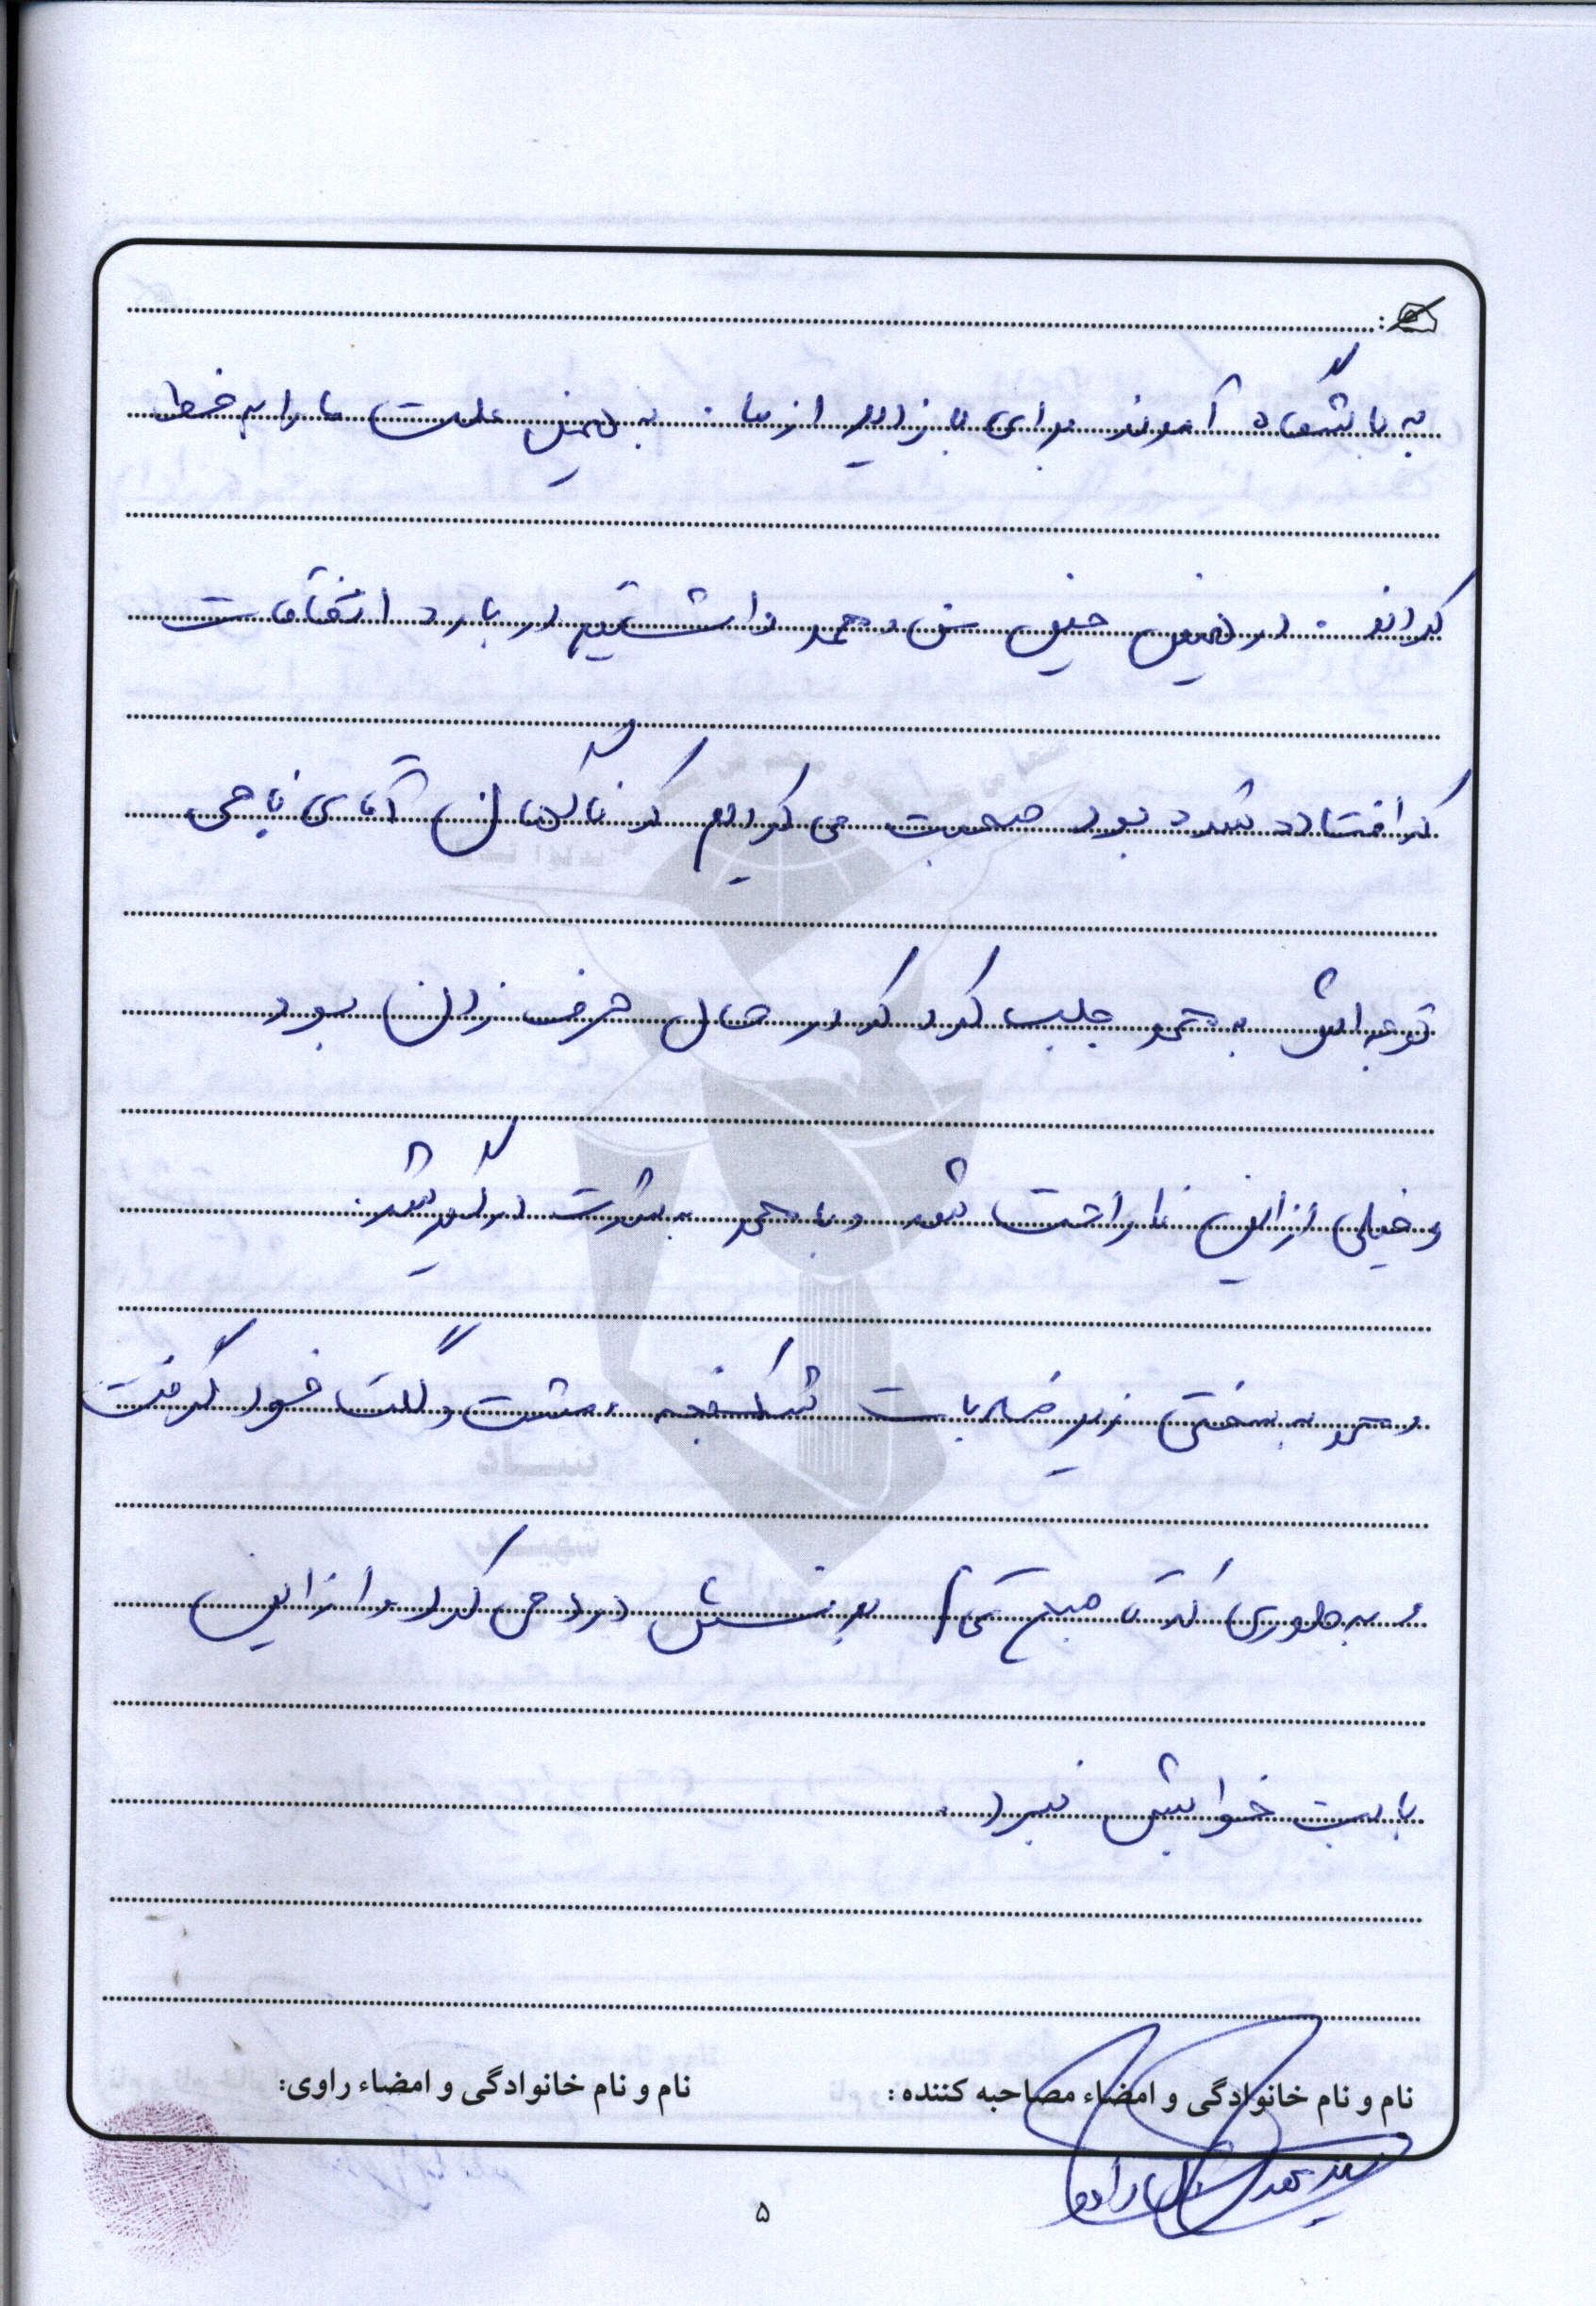 به باشگاه آمدند برای بازدید از ما. به همین علت ما را به خط
کردند. در همین حین من و محمد داشتیم در باره اتفاقات
که افتاده شده بود صحبت می کردیم که ناگهان آقای ناجی
توجه اش به محمد جلب کرد که در حال حرف زدن بود
و خیلی از این ناراحت شد و با محمد به شدت درگیر شد.
و محمد به سختی زیر ضربات شکنجه، مشت و لگد خود گرفت
و به طوری که تا صبح تمام بدنش درد می کرد و از این
بابت خوابش نبرد.
نام و نام خانوادگی و امضاء مصاحبه کننده:
نام و نام خانوادگی و امضاء راوی:
۵